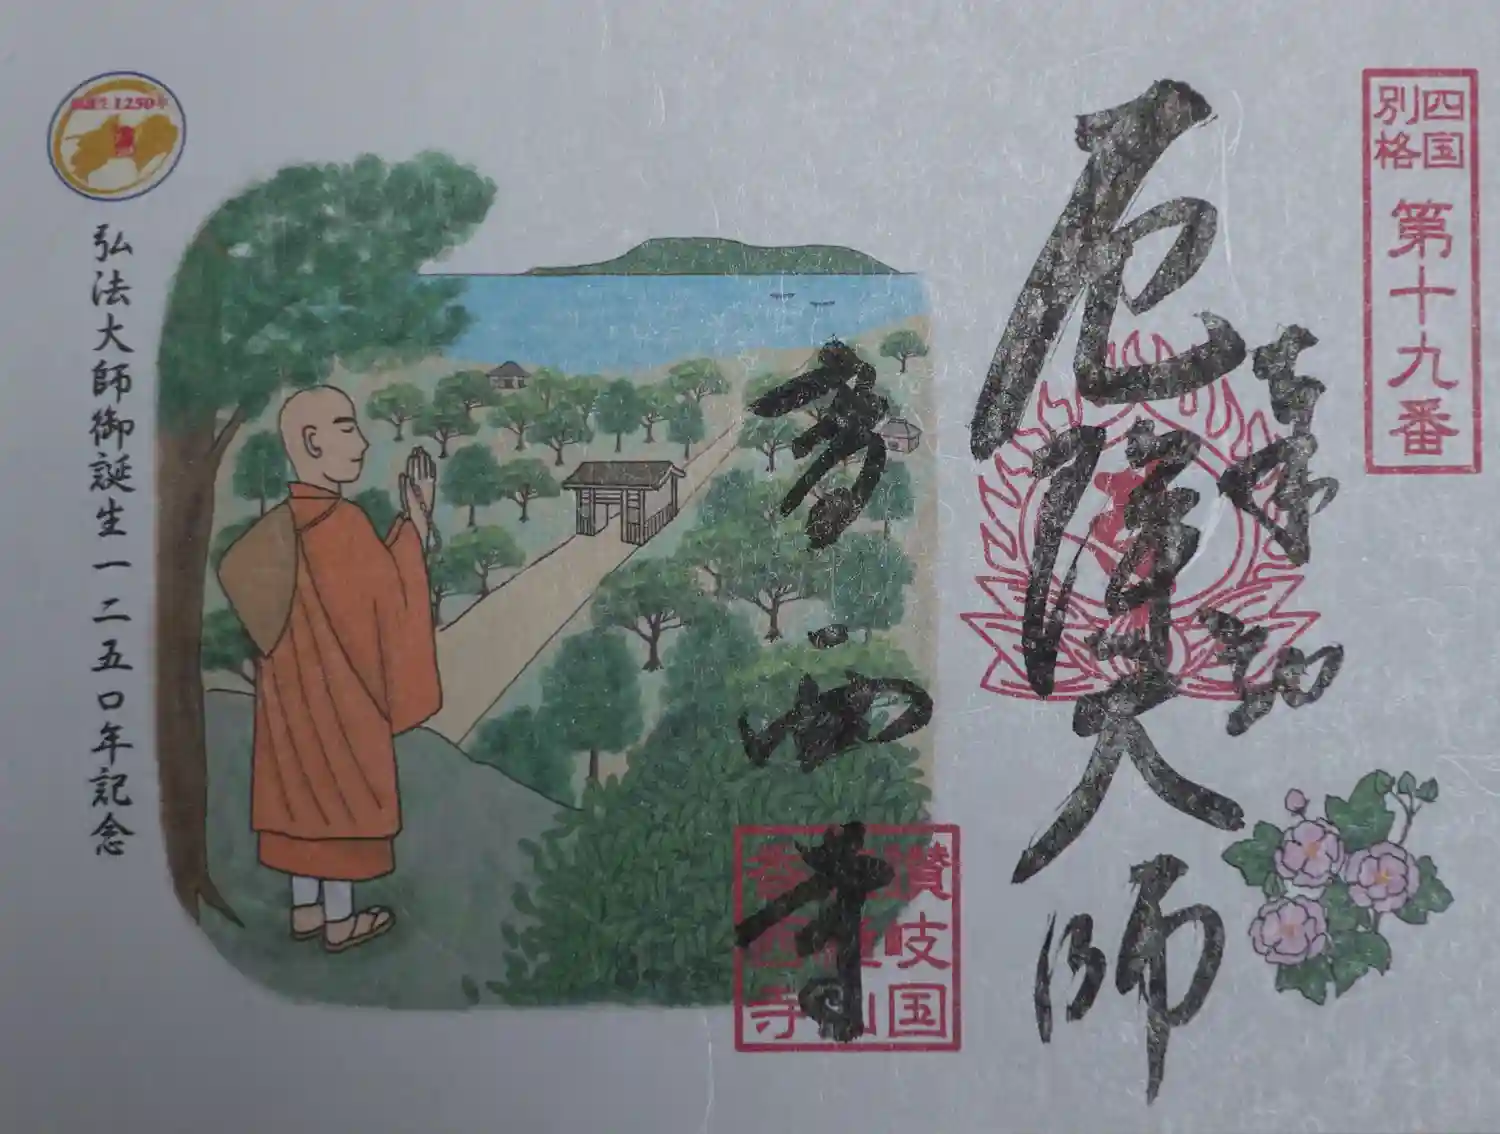 四国
別格
第十九番
奉納
厄除大師
香西寺
讃岐国
香西寺
御誕生1250年
弘法大師御誕生一二五〇年記念